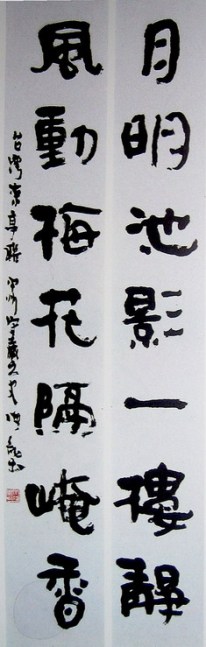 月明池影一樓靜
風動梅花隔崦香
台灣涼亭聯